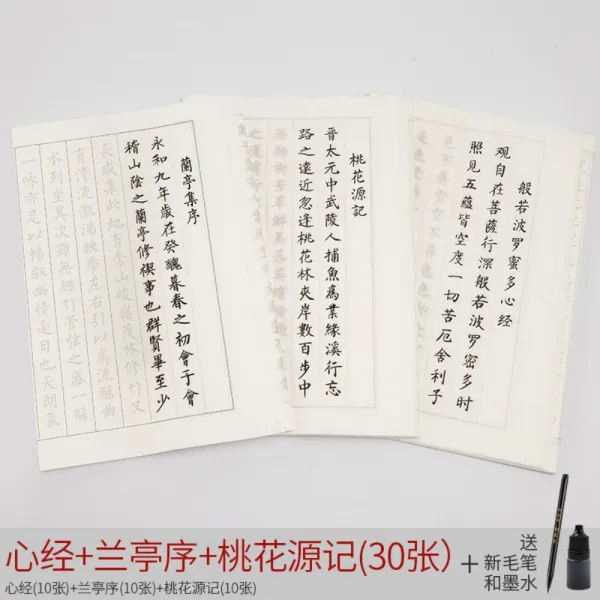 般若波罗蜜多心经
观自在菩薩行深般若波罗密多时
照见五蘊皆空度一切苦厄舍利子
桃花源記
晉太元中武陵人捕魚爲業緣溪行忘
路之遠近忽逢桃花林夾岸數百步中
蘭亭集序
永和九年歲在癸醜暮春之初會于會
稽山陰之蘭亭修禊事也群賢畢至少
長咸集此地有崇山峻嶺茂林修竹又
有清流激湍映帶左右引以爲流觴曲
水列坐其次雖無絲竹管弦之盛一觴
一咏亦足以暢叙幽情是日也天朗氣
心经+兰亭序+桃花源记(30张)
心经(10张)+兰亭序(10张)+桃花源记(10张)
+
送
新毛笔
和墨水